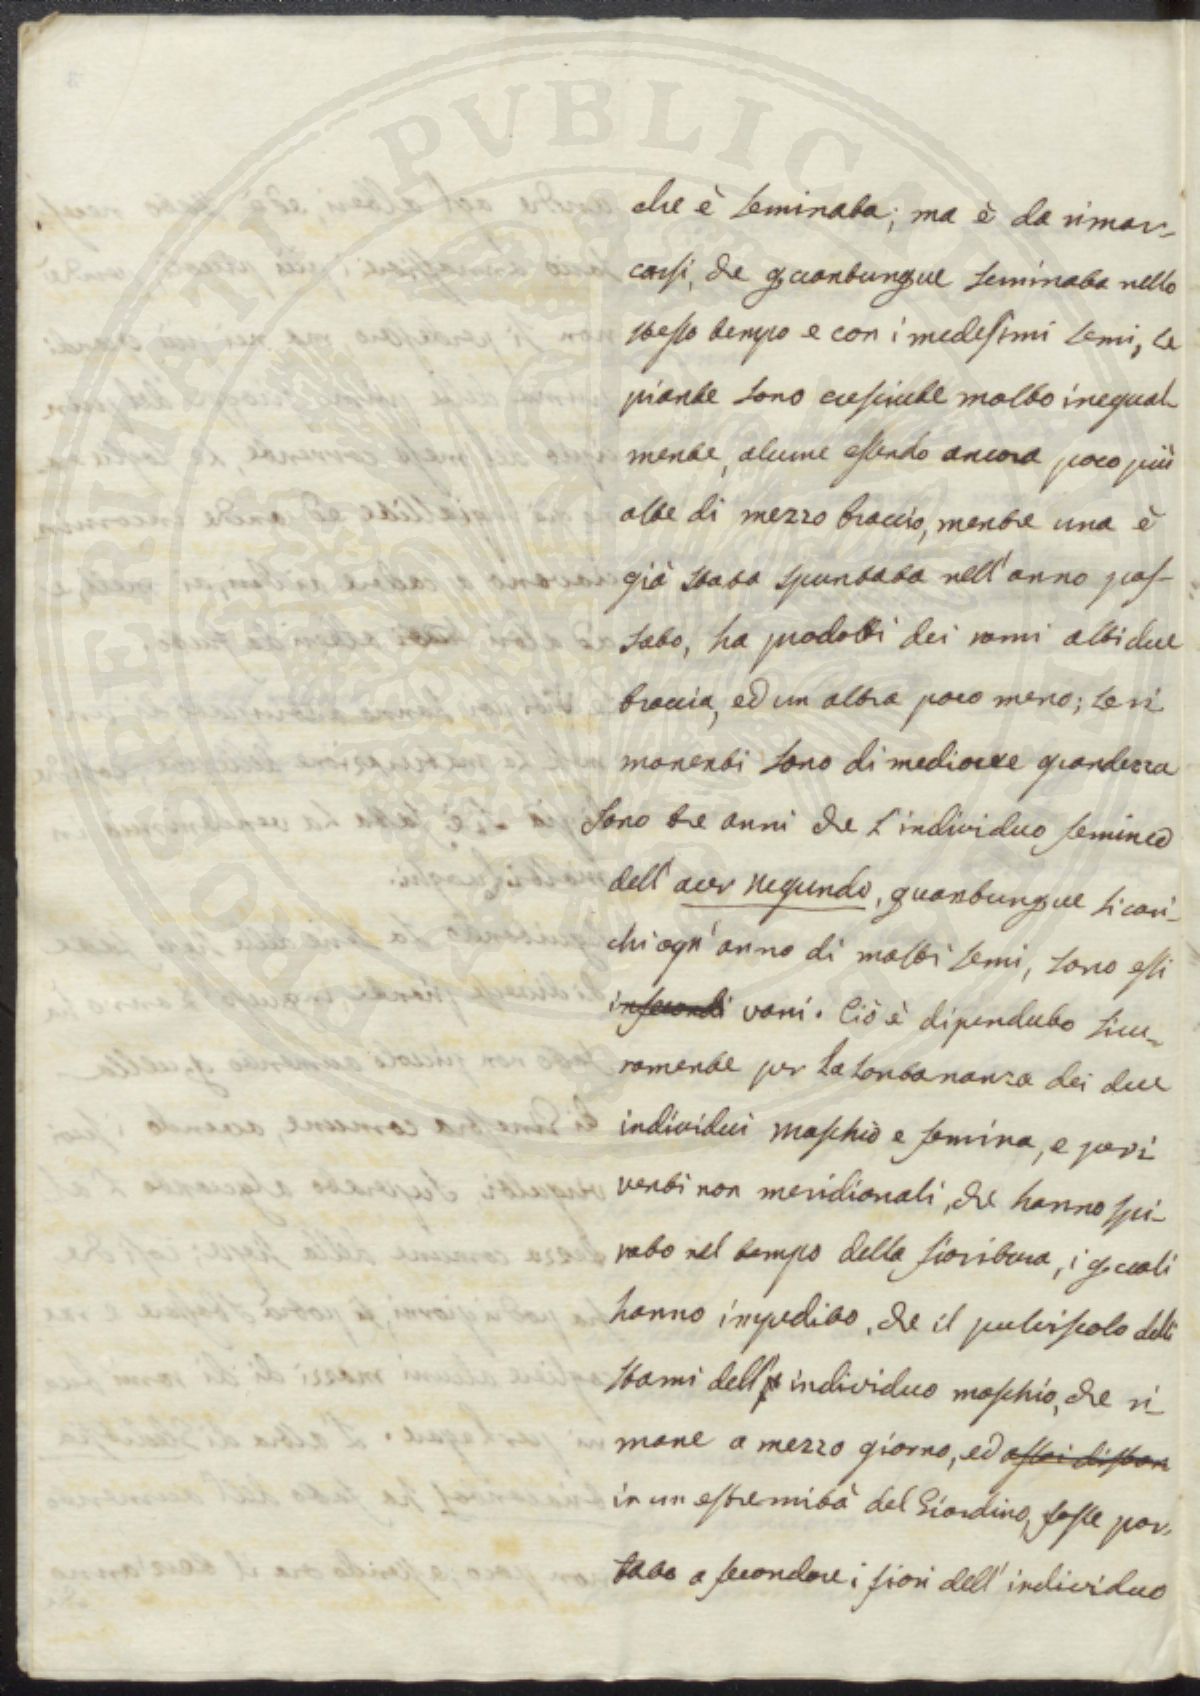 che è seminata; ma è da rimar-
carsi, che quantunque seminata nello
stesso tempo e con i medesimi semi, le
piante sono cresciute molto inegual-
mente, alcune essendo ancora poco più
alte di mezzo braccio, mentre una è
già stata spuntata nell'anno pas-
sato, ha prodotti dei rami alti due
braccia, ed un altra poco meno; le ri-
manenti sono di mediocre grandezza
Sono tre anni che l'individuo femineo
dell'acer negundo, quantunque si cari-
chi ogn'anno di molti semi, sono essi
infecondi vani. Ciò è dipenduto sicu-
ramente per la lontananza dei due
individui maschio e femina, e per i
venti non meridionali, che hanno spi-
rato nel tempo della fioritura, i quali
hanno impedito, che il pulviscolo delli
stami dell' individuo maschio, che ri-
mane a mezzo giorno, ed assai distan
in un estremità del Giardino, fosse por-
tato a fecondare i fiori dell'individuo
PUBLIC